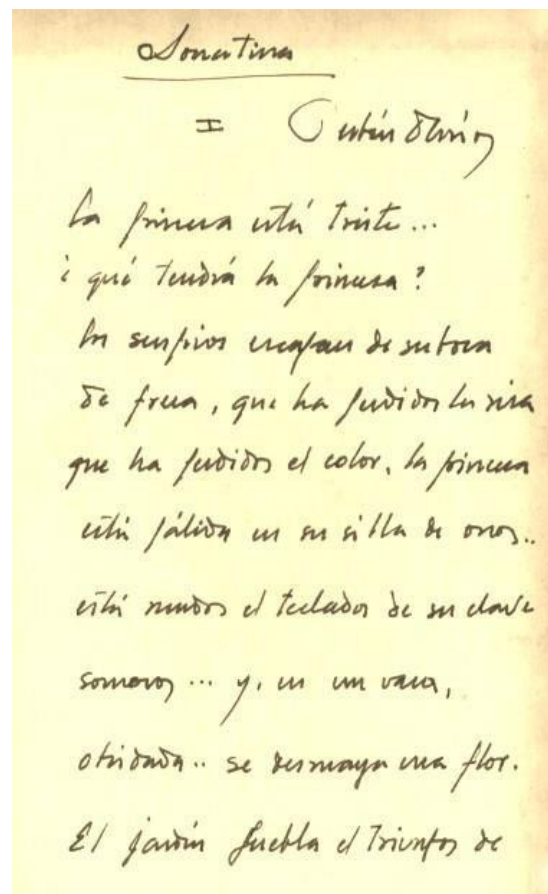 Sonatina
I Rubén Darío
La princesa está triste...
¿qué tendrá la princesa?
los suspiros escapan de su boca
de fresa, que ha perdido la risa
que ha perdido el color. la princesa
está pálida en su silla de oro..
está mudo el teclado de su clave
sonoro... y, en un vaso,
olvidada.. se desmaya una flor.
El jardín puebla el triunfo de